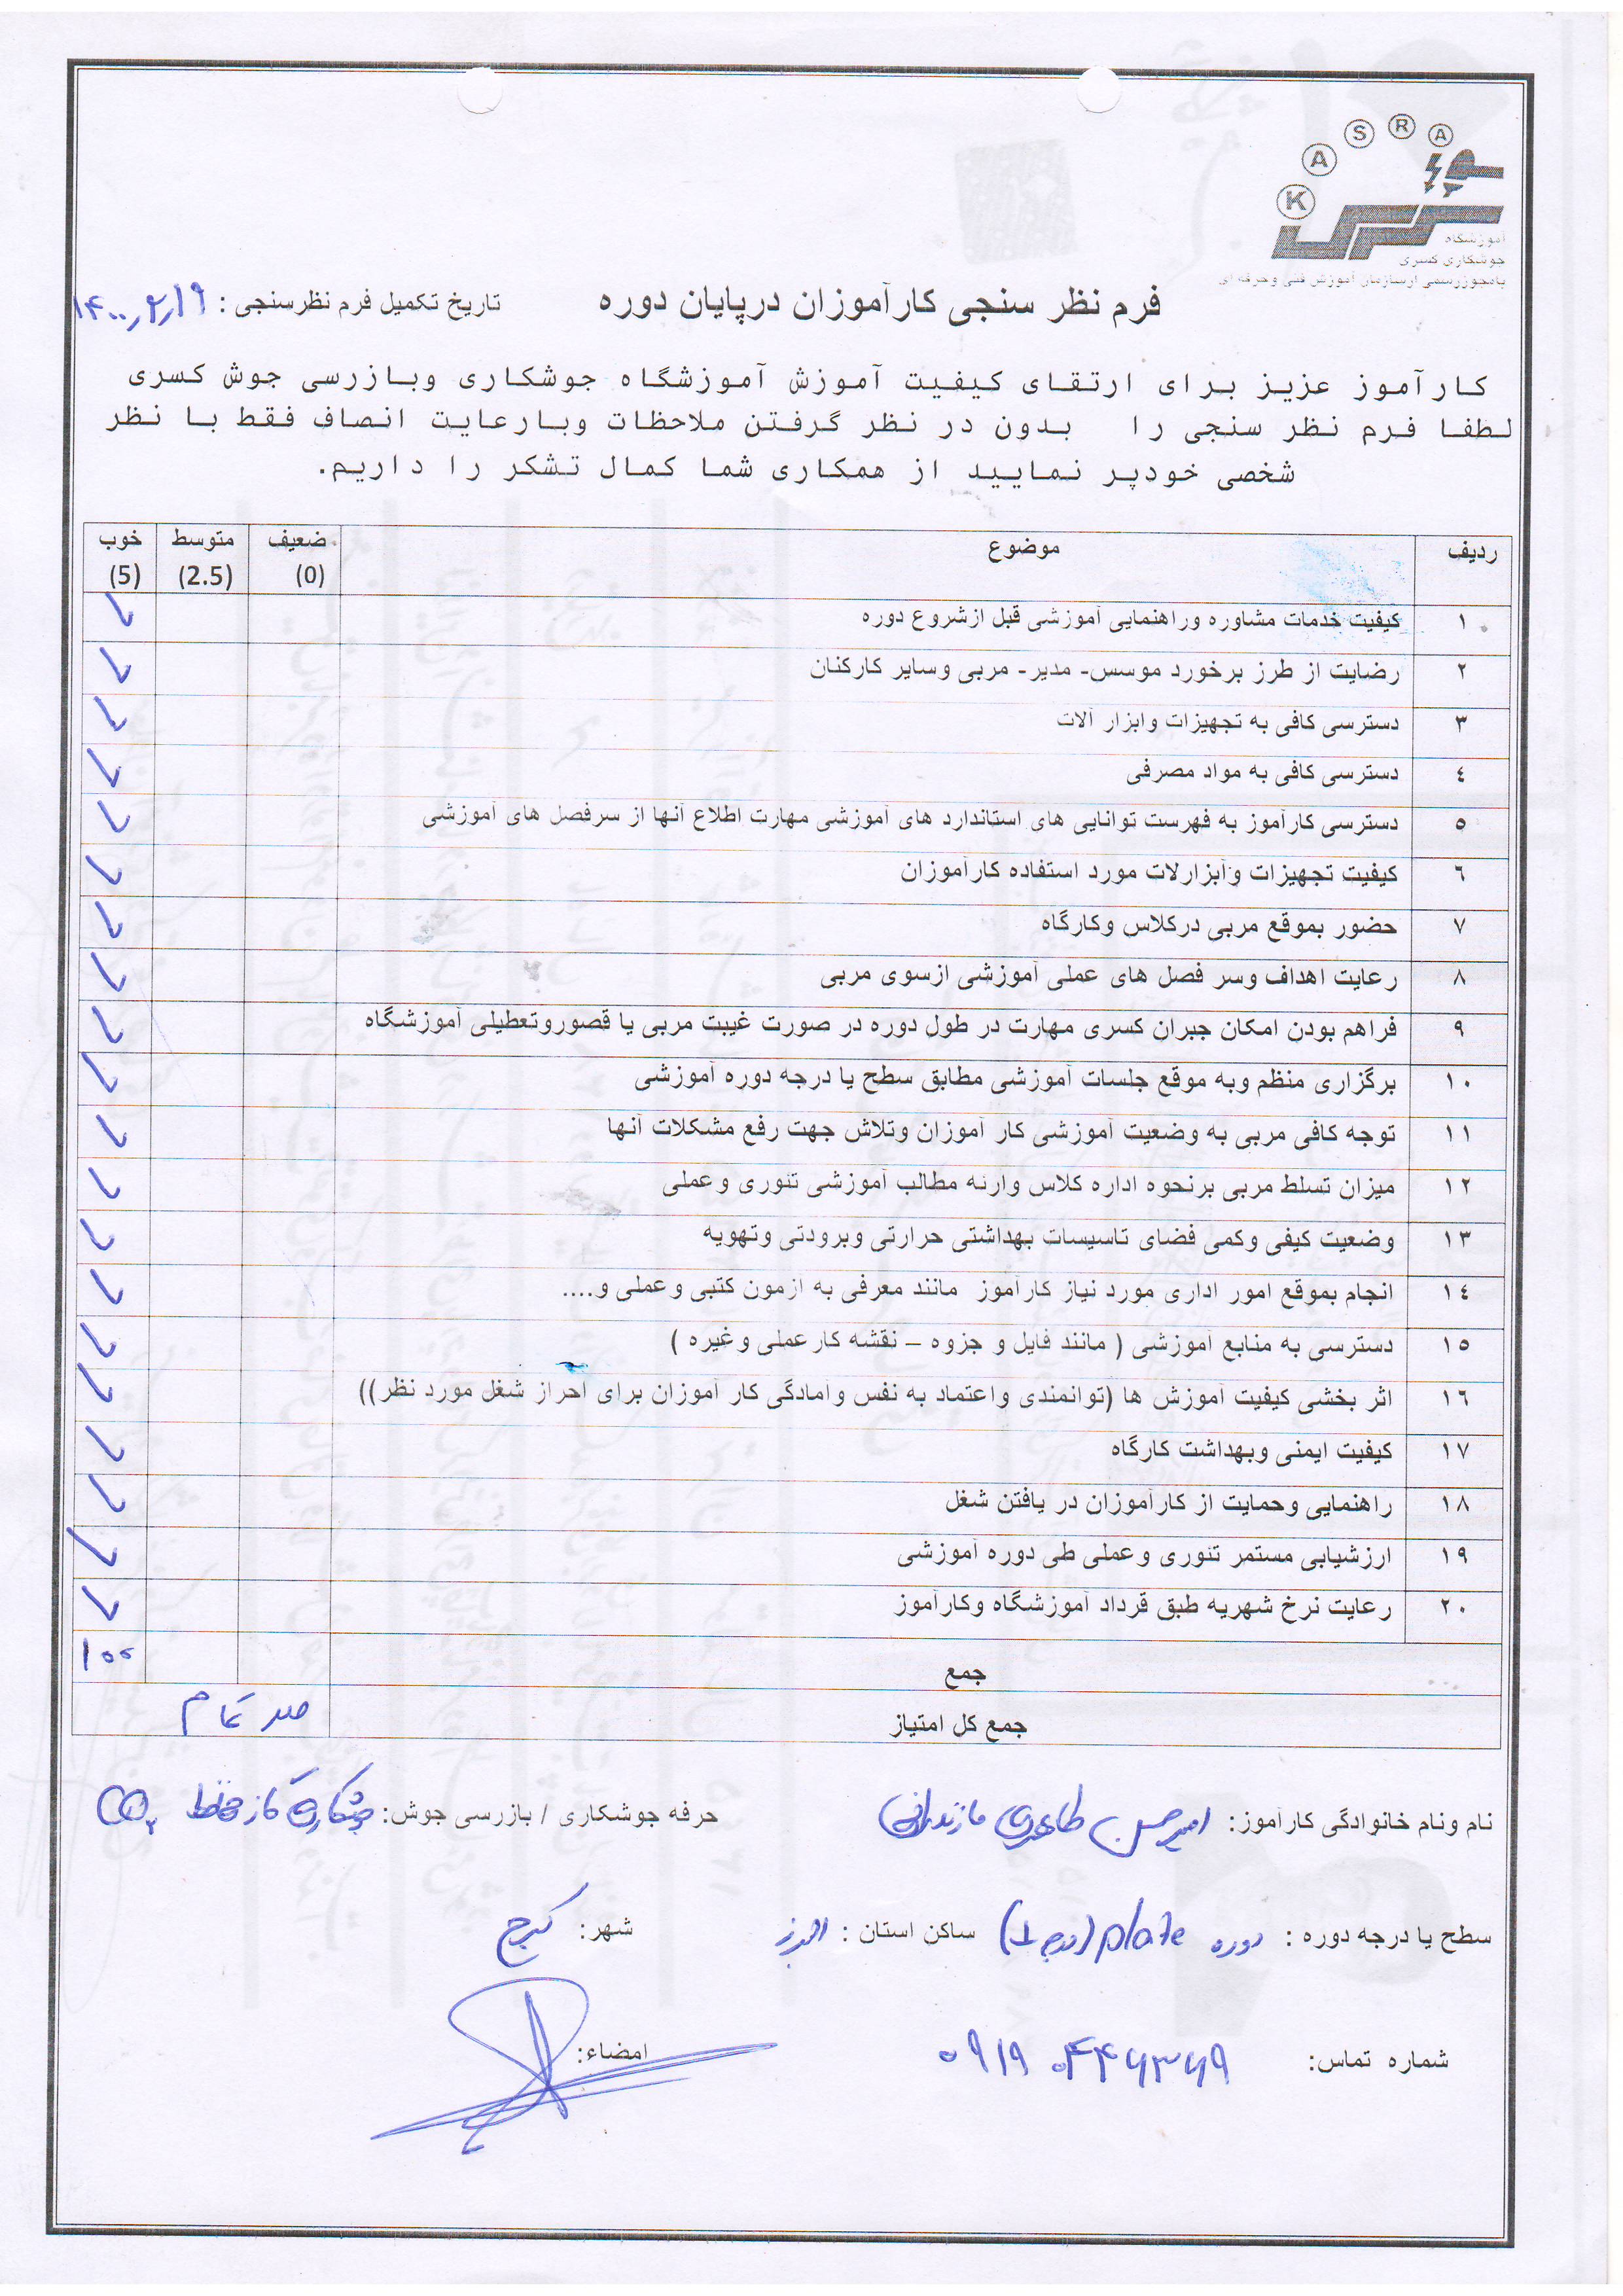 K A S R A
آموزشگاه
جوشکاری کسری
بامجوزرسمی ازسازمان آموزش فنی وحرفه ای
فرم نظر سنجی کارآموزان درپایان دوره
تاریخ تکمیل فرم نظرسنجی : ۱۴۰۰٫۲٫۱۹
کارآموز عزیز برای ارتقای کیفیت آموزش آموزشگاه جوشکاری وبازرسی جوش کسری
لظفا فرم نظر سنجی را بدون در نظر گرفتن ملاحظات وبارعایت انصاف فقط با نظر
شخصی خودپر نمایید از همکاری شما کمال تشکر را داریم.
ردیف موضوع ضعیف (0) متوسط (2.5) خوب (5)
۱ کیفیت خدمات مشاوره وراهنمایی آموزشی قبل ازشروع دوره ✓
۲ رضایت از طرز برخورد موسس- مدیر- مربی وسایر کارکنان ✓
۳ دسترسی کافی به تجهیزات وابزار آلات ✓
٤ دسترسی کافی به مواد مصرفی ✓
٥ دسترسی کارآموز به فهرست توانایی های استاندارد های آموزشی مهارت اطلاع آنها از سرفصل های آموزشی ✓
٦ کیفیت تجهیزات وآبزارلات مورد استفاده کارآموزان ✓
۷ حضور بموقع مربی درکلاس وکارگاه ✓
۸ رعایت اهداف وسر فصل های عملی آموزشی ازسوی مربی ✓
۹ فراهم بودن امکان جبران کسری مهارت در طول دوره در صورت غیبت مربی یا قصوروتعطیلی آموزشگاه ✓
۱۰ برگزاری منظم وبه موقع جلسات آموزشی مطابق سطح یا درجه دوره آموزشی ✓
۱۱ توجه کافی مربی به وضعیت آموزشی کار آموزان وتلاش جهت رفع مشکلات آنها ✓
۱۲ میزان تسلط مربی برنحوه اداره کلاس وارئه مطالب آموزشی تئوری و عملی ✓
۱۳ وضعیت کیفی وکمی فضای تاسیسات بهداشتی حرارتی وبرودتی وتهویه ✓
۱٤ انجام بموقع امور اداری مورد نیاز کارآموز مانند معرفی به آزمون کتبی و عملی و.... ✓
۱٥ دسترسی به منابع آموزشی ( مانند فایل و جزوه – نقشه کار عملی و غیره ) ✓
۱٦ اثر بخشی کیفیت آموزش ها (توانمندی واعتماد به نفس وآمادگی کار آموزان برای احراز شغل مورد نظر)) ✓
۱۷ کیفیت ایمنی وبهداشت کارگاه ✓
۱۸ راهنمایی وحمایت از کارآموزان در یافتن شغل ✓
۱۹ ارزشیابی مستمر تئوری و عملی طی دوره آموزشی ✓
۲۰ رعایت نرخ شهریه طبق قرداد آموزشگاه وکارآموز ✓
جمع 100
جمع کل امتیاز صد تمام
نام ونام خانوادگی کارآموز: امیرحسین طاهری مازندرانی حرفه جوشکاری / بازرسی جوش: جوشکاری گاز محافظ CO₂
سطح یا درجه دوره : دوره plate (درجه 1) ساکن استان : البرز شهر: کرج
شماره تماس: ۰۹۱۹۰۴۴۶۳۶۹ امضاء: